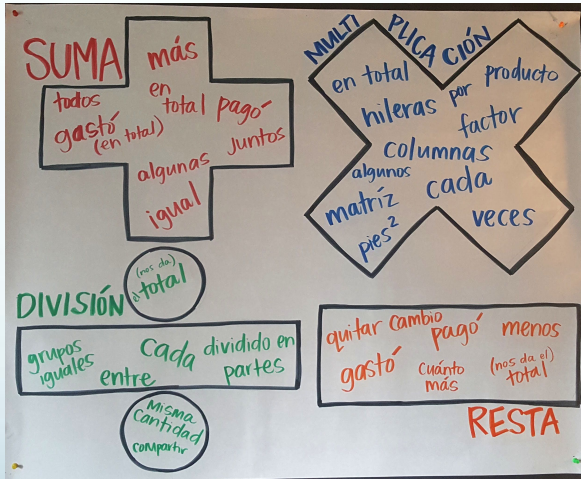 SUMA
más
todos
en
total pagó
gastó
(en total)
juntos
algunas
igual
MULTIPLICACIÓN
en total
por producto
hileras
factor
columnas
algunos
cada
matríz
veces
pies²
(nos da)
el total
DIVISIÓN
grupos
iguales
entre
cada
dividido en
partes
Misma
cantidad
compartir
quitar cambio
pagó menos
gastó
cuánto
más
(nos da el)
total
RESTA